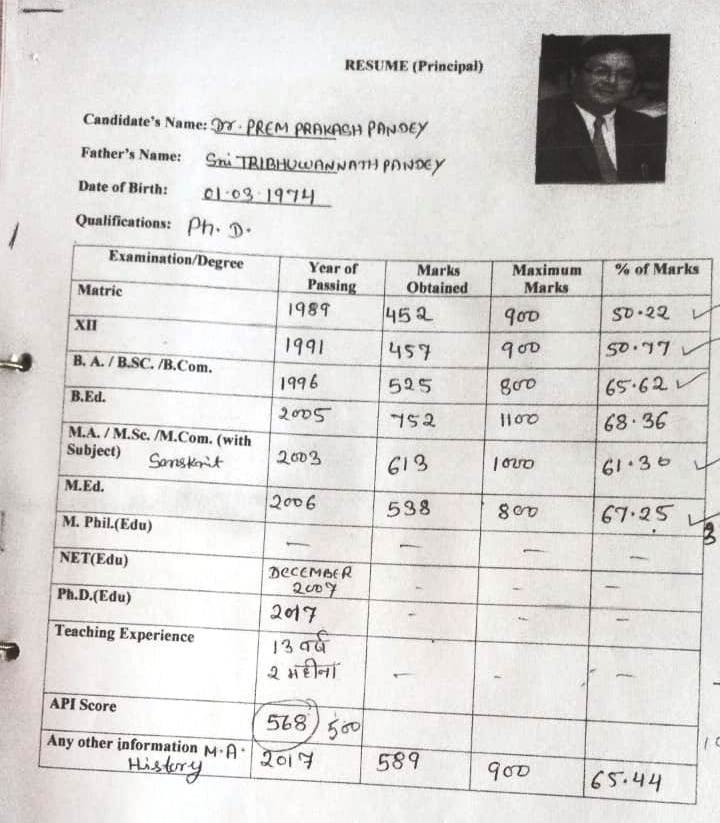 RESUME (Principal)
Candidate's Name: Dr. PREM PRAKASH PANDEY
Father's Name: Sri TRIBHUWANNATH PANDEY
Date of Birth: 01.03.1974
Qualifications: Ph. D.
Examination/Degree Year of Passing Marks Obtained Maximum Marks % of Marks
Matric 1989 452 900 50.22
XII 1991 457 900 50.77
B. A. / B.SC. /B.Com. 1996 525 800 65.62
B.Ed. 2005 752 1100 68.36
M.A. / M.Sc. /M.Com. (with Subject) Sanskrit 2003 613 1000 61.30
M.Ed. 2006 538 800 67.25
M. Phil.(Edu) — — — —
NET(Edu) DECEMBER 2007 - - -
Ph.D.(Edu) 2017 - - -
Teaching Experience 13 वर्ष 2 महीना - - -
API Score 568 500
Any other information M.A. History 2017 589 900 65.44